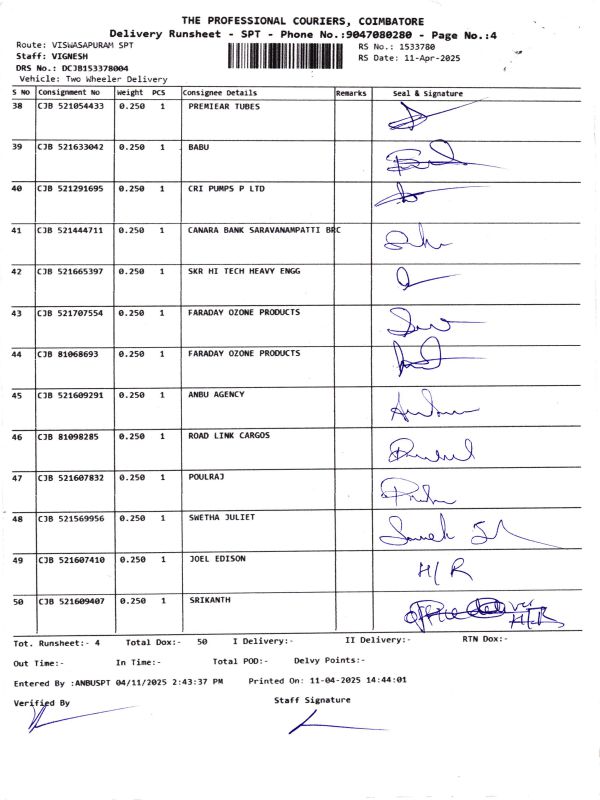 THE PROFESSIONAL COURIERS, COIMBATORE
Delivery Runsheet - SPT - Phone No.:9047080280 - Page No.:4
Route: VISWASAPURAM SPT RS No.: 1533780
Staff: VIGNESH RS Date: 11-Apr-2025
DRS No.: DCJB153378004
Vehicle: Two Wheeler Delivery
S No Consignment No Weight PCS Consignee Details Remarks Seal & Signature
38 CJB 521054433 0.250 1 PREMIEAR TUBES
39 CJB 521633042 0.250 1 BABU
40 CJB 521291695 0.250 1 CRI PUMPS P LTD
41 CJB 521444711 0.250 1 CANARA BANK SARAVANAMPATTI BRC
42 CJB 521665397 0.250 1 SKR HI TECH HEAVY ENGG
43 CJB 521707554 0.250 1 FARADAY OZONE PRODUCTS
44 CJB 81068693 0.250 1 FARADAY OZONE PRODUCTS
45 CJB 521609291 0.250 1 ANBU AGENCY
46 CJB 81098285 0.250 1 ROAD LINK CARGOS
47 CJB 521607832 0.250 1 POULRAJ
48 CJB 521569956 0.250 1 SWETHA JULIET
49 CJB 521607410 0.250 1 JOEL EDISON H/R
50 CJB 521609407 0.250 1 SRIKANTH H/R
Tot. Runsheet:- 4 Total Dox:- 50 I Delivery:- II Delivery:- RTN Dox:-
Out Time:- In Time:- Total POD:- Delvy Points:-
Entered By :ANBUSPT 04/11/2025 2:43:37 PM Printed On: 11-04-2025 14:44:01
Verified By Staff Signature